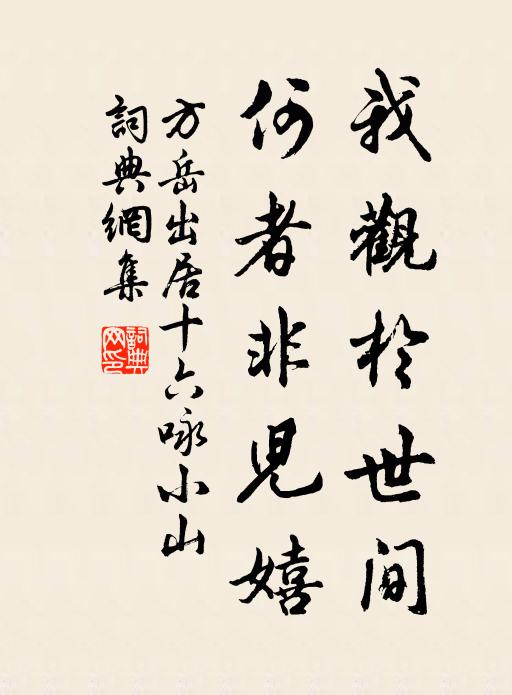 我觀於世間
何者非兒嬉
方岳出居十六咏小山
詞典網集
詞典網印